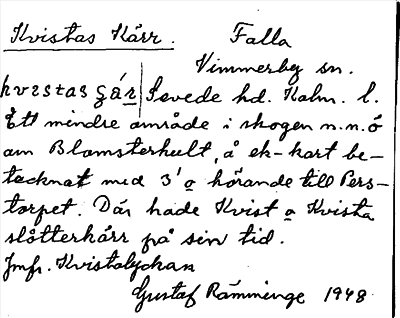 Kvistas Kärr. Falla
Vimmerby sn.
kvɩstas çá̱ṟ Sevede hd. Kalm. l.
Ett mindre område i skogen n.n.ö
om Blomsterhult, å ek-kart be-
tecknat med 3'a hörande till Pers-
torpet. Där hade Kvist o Kvista
slåtterkärr på sin tid.
Jmfr. Kvistalyckan
Gustaf Rämminge 1948